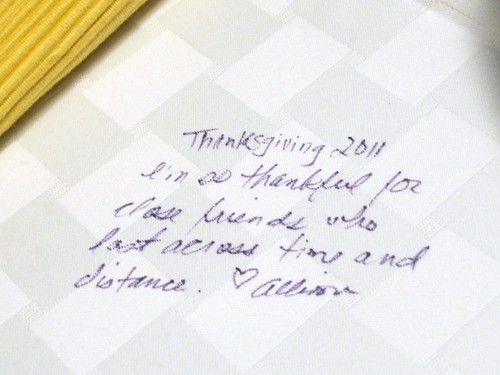 Thanksgiving 2011
I'm so thankful for
close friends who
last across time and
distance. ♡ Allison